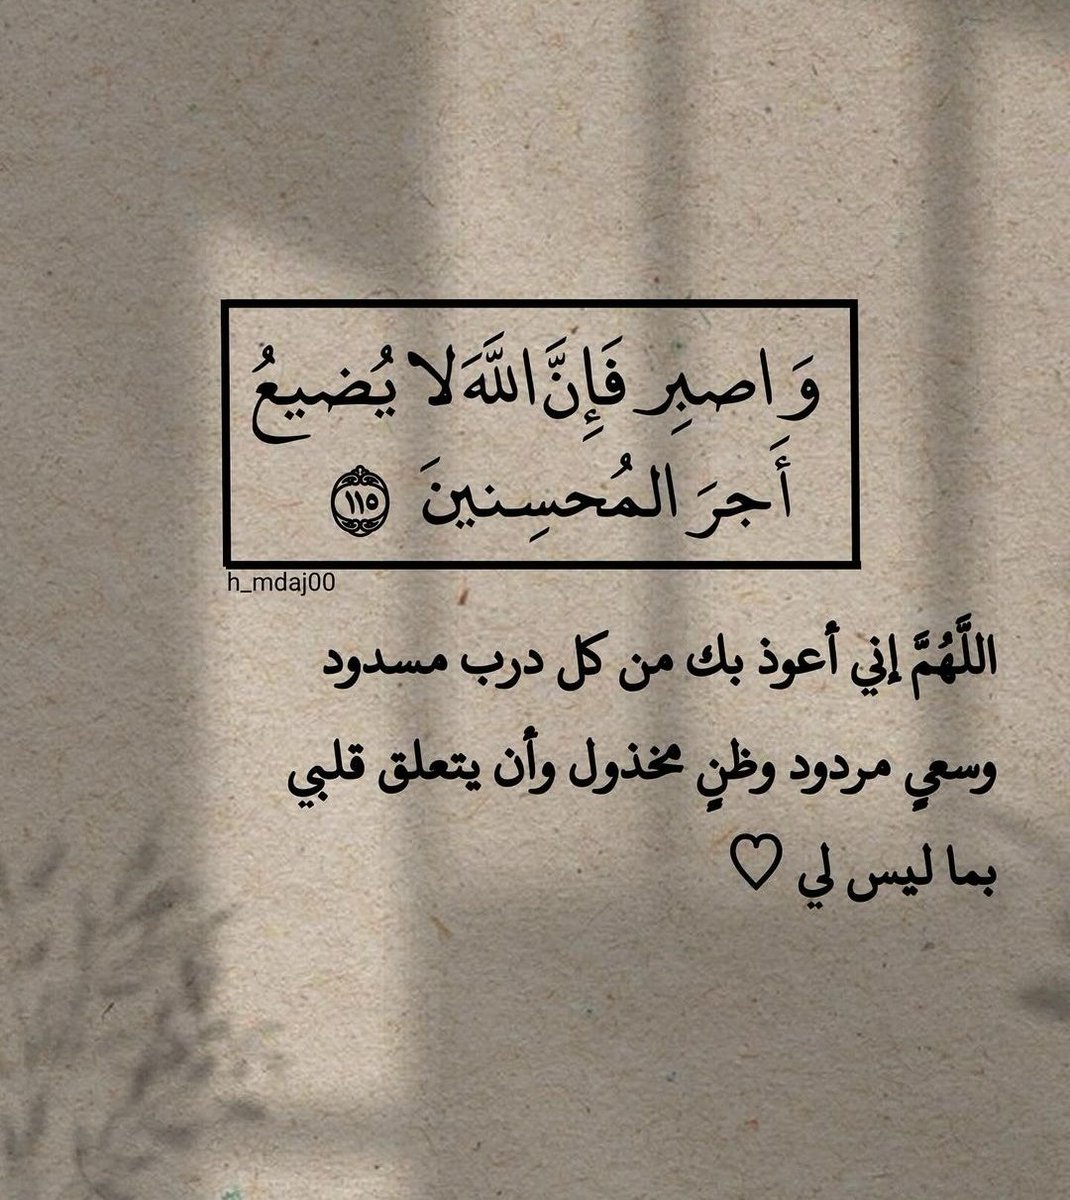 وَاصبِر فَإِنَّ اللَّهَ لا يُضيعُ
أَجرَ المُحسِنينَ ١١٥
h_mdaj00
اللَّهُمَّ إني أعوذ بك من كل درب مسدود
وسعيٍ مردود وظنٍ مخذول وأن يتعلق قلبي
بما ليس لي ♡